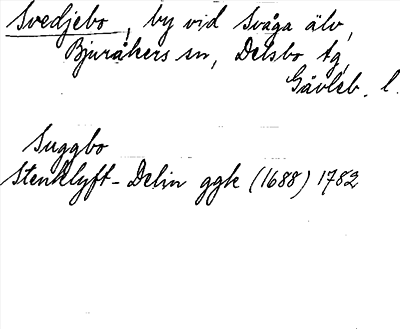 Svedjebo, by vid Svåga älv,
Bjuråkers sn, Delsbo tg,
Gävleb. l.
Suggbo
Stenklyft-Delin ggk (1688) 1782